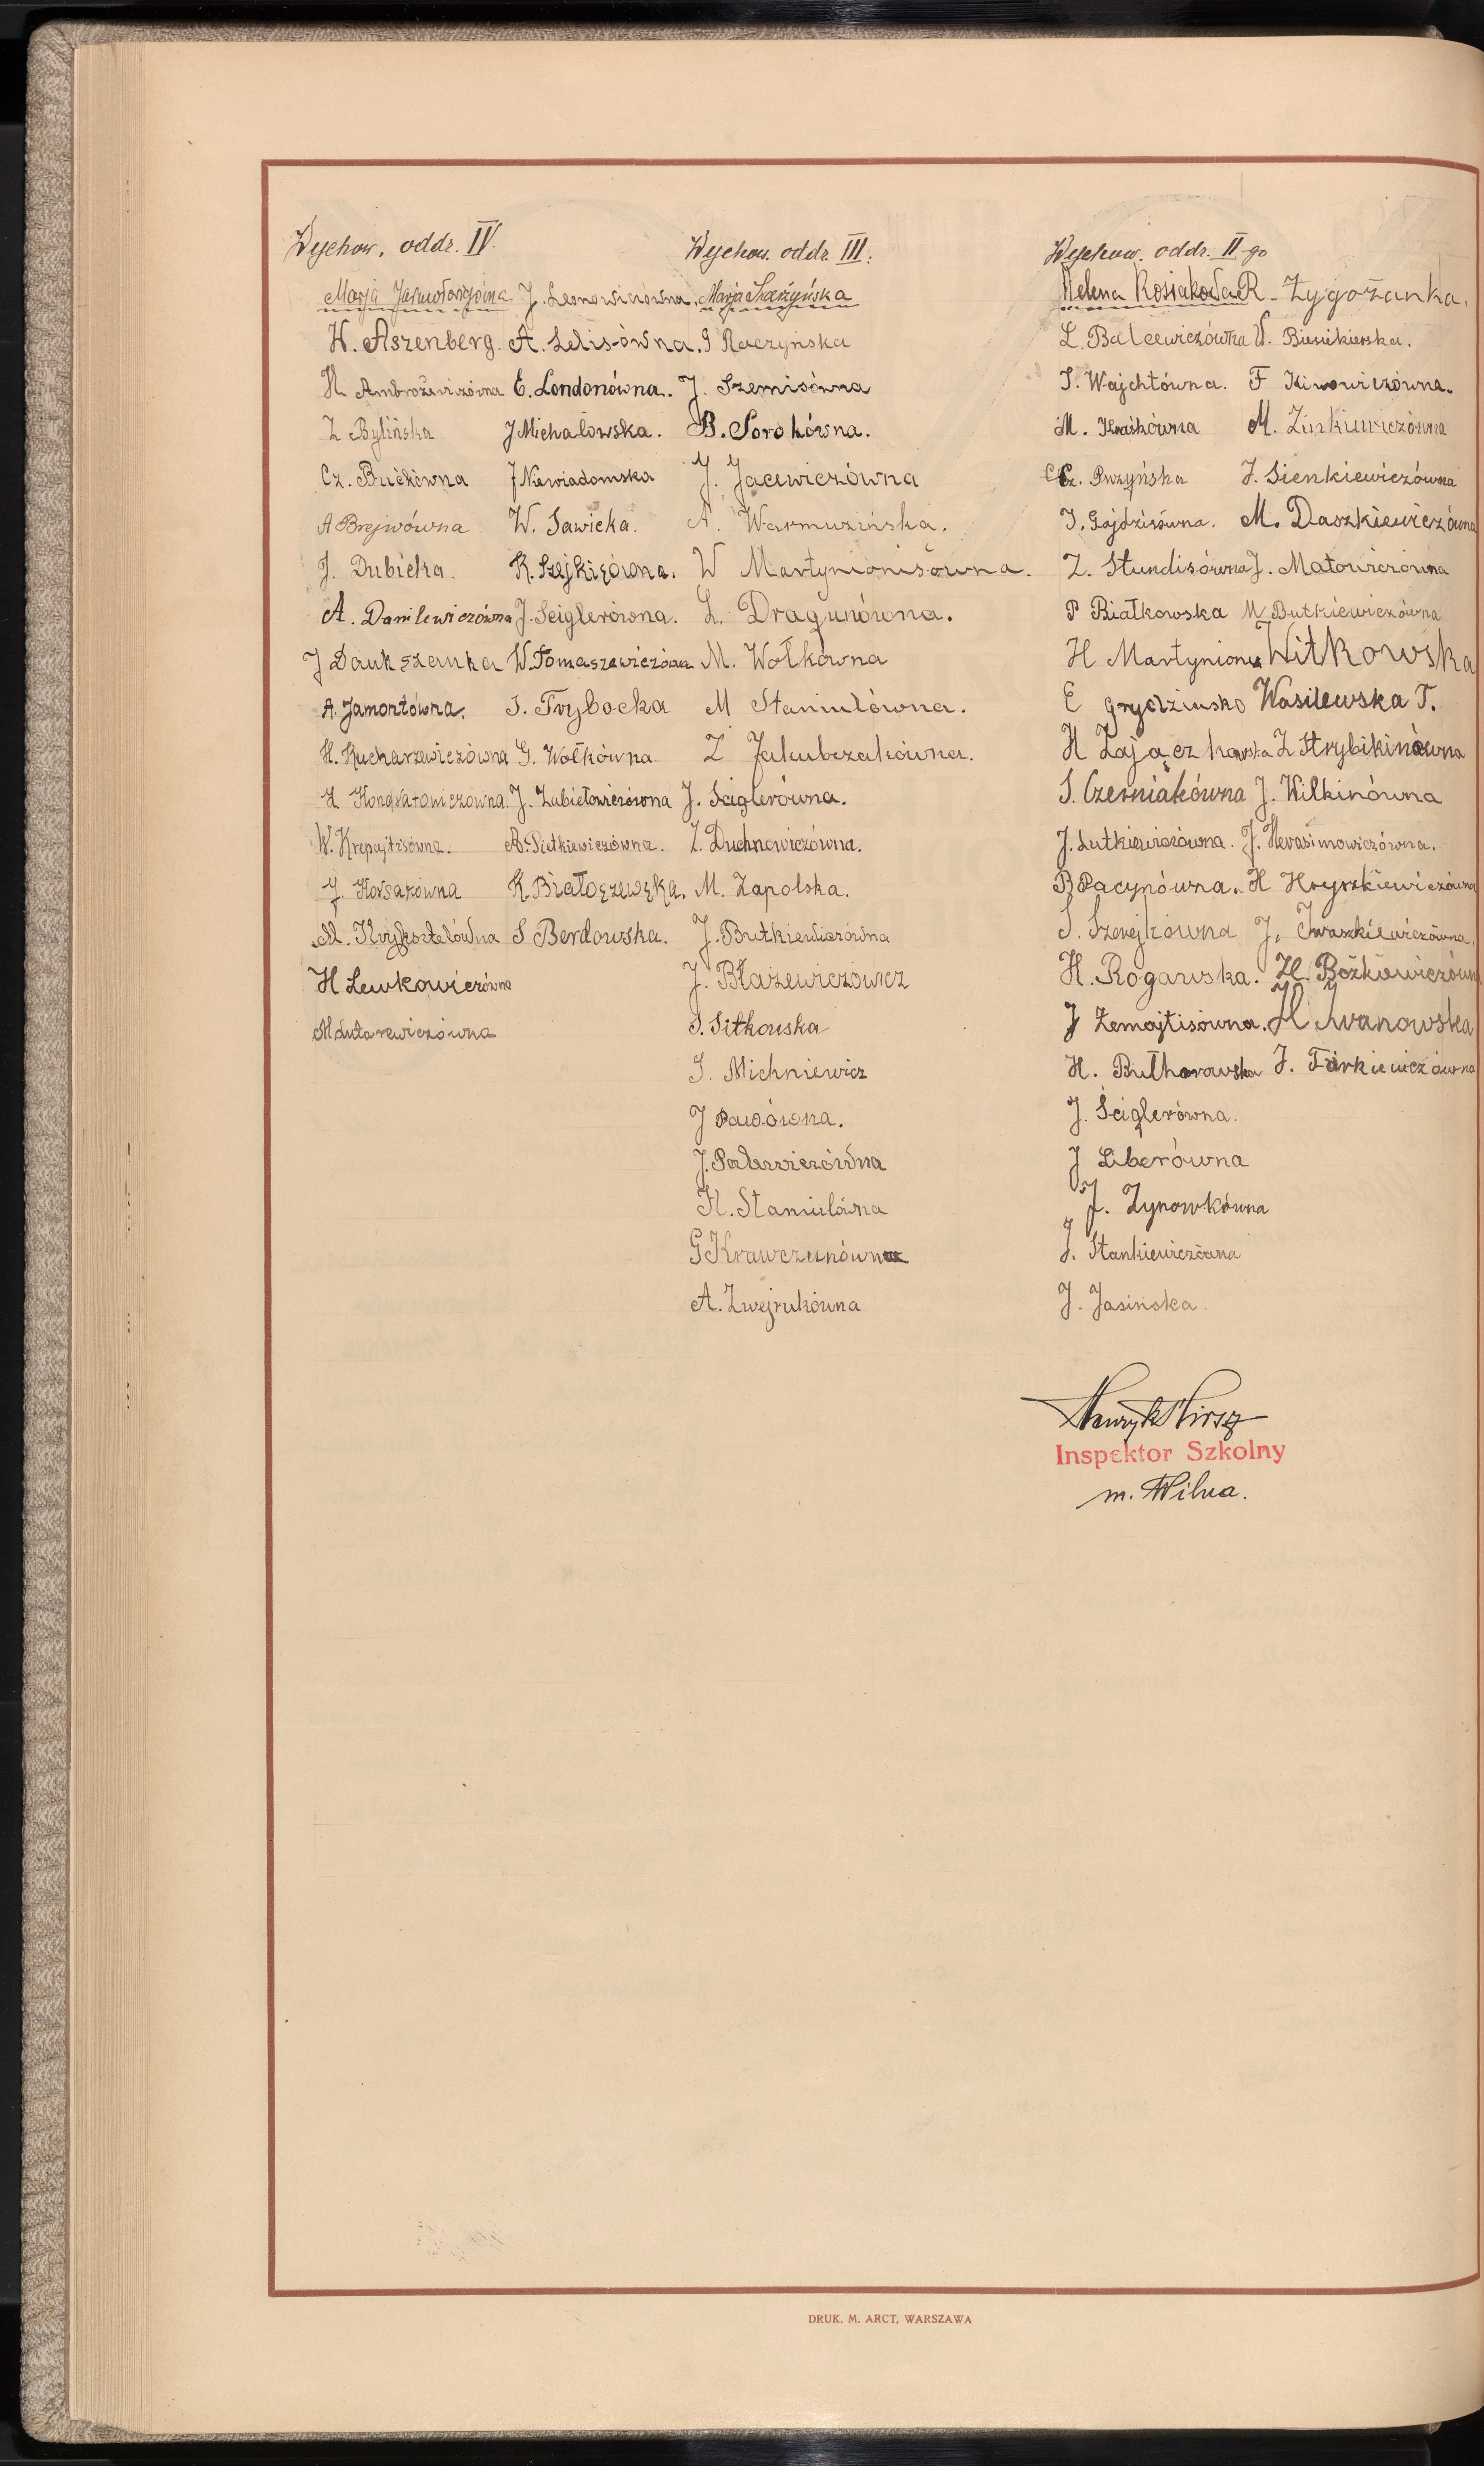 Wychow. oddz. IV.
Marja
J. Leonowiczówna.
H. Aszenberg. A. Lelisówna.
H Ambrożewiczówna E. Londonówna.
Z Bylińska J Michałowska.
Cz. Bućkówna J Niewiadomska
A Brejwówna W. Sawicka.
J. Dubicka. K. Szejkięówna.
A. Danilewiczówna J. Sciglerówna.
J Daukszanka W. Tomaszewiczówna
A. Jamontówna. J. Trybocka
H. Kucharzewiczówna G. Wołkówna
H Kondratowiczówna. J. Zubiełowiczówna
W. Krepajtisówna. A. Pietkiewiczówna.
J. Korsakówna K. Białoszewska.
M. Krysztelówna S Berdowska.
H Lewkowiczówna
M Lutarewiczówna
Wychow. oddz. III.
Marja Skarżyńska
G Raczyńska
J. Szemisówna
B. Sorokówna.
J. Jacewiczówna
A. Warmuzińska.
W Martynionisówna.
L. Dragunówna.
M. Wołkówna
M Staniulówna.
Z Jakubczakówna.
J. Sciglerówna.
Z. Duchnowiczówna.
M. Zapolska.
J. Butkiewiczówna
J. Błażewiczówicz
S. Sitkouska
J. Michniewicz
J Pawówna.
H. Staniulówna
G Krawczunówna
A. Zwejrukówna
Wychow. oddz. II-go
Helena Rosiakowa R. Żygożanka.
L. Balcewiczówna W. Biesiekierska.
S. Wajchtówna. F Kimowiczówna.
M. Kraśkówna M. Zinkiewiczówna
Cz. Przyńska J. Sienkiewiczówna
J. Gajdzisówna. M. Daszkiewiczówna
Z. Stundisówna J. Matowiczówna
P Białkowska M Butkiewiczówna
H Martynionis Witkowska
E Grydziusko Wasilewska T.
H Zajączkowska Z Strybikinówna
S. Czerniakówna J. Wilkinówna
J. Lutkiewiczówna. J. Herasimowiczówna.
B Pacynówna. H Hryszkiewiczówna
S. Szerejkówna J. Iwaszkiewiczówna.
H. Rogawska. H. Bożkiewiczówna
J Żemojtisówna. H Iwanowska
H. Bułharowska J. Turkiewiczówna
J. Ściglerówna.
J Liberówna
J. Zynowkówna
J. Stankiewiczówna
J. Jasińska.
Henryk Hirsz
Inspektor Szkolny
m. Wilna.
DRUK. M. ARCT, WARSZAWA